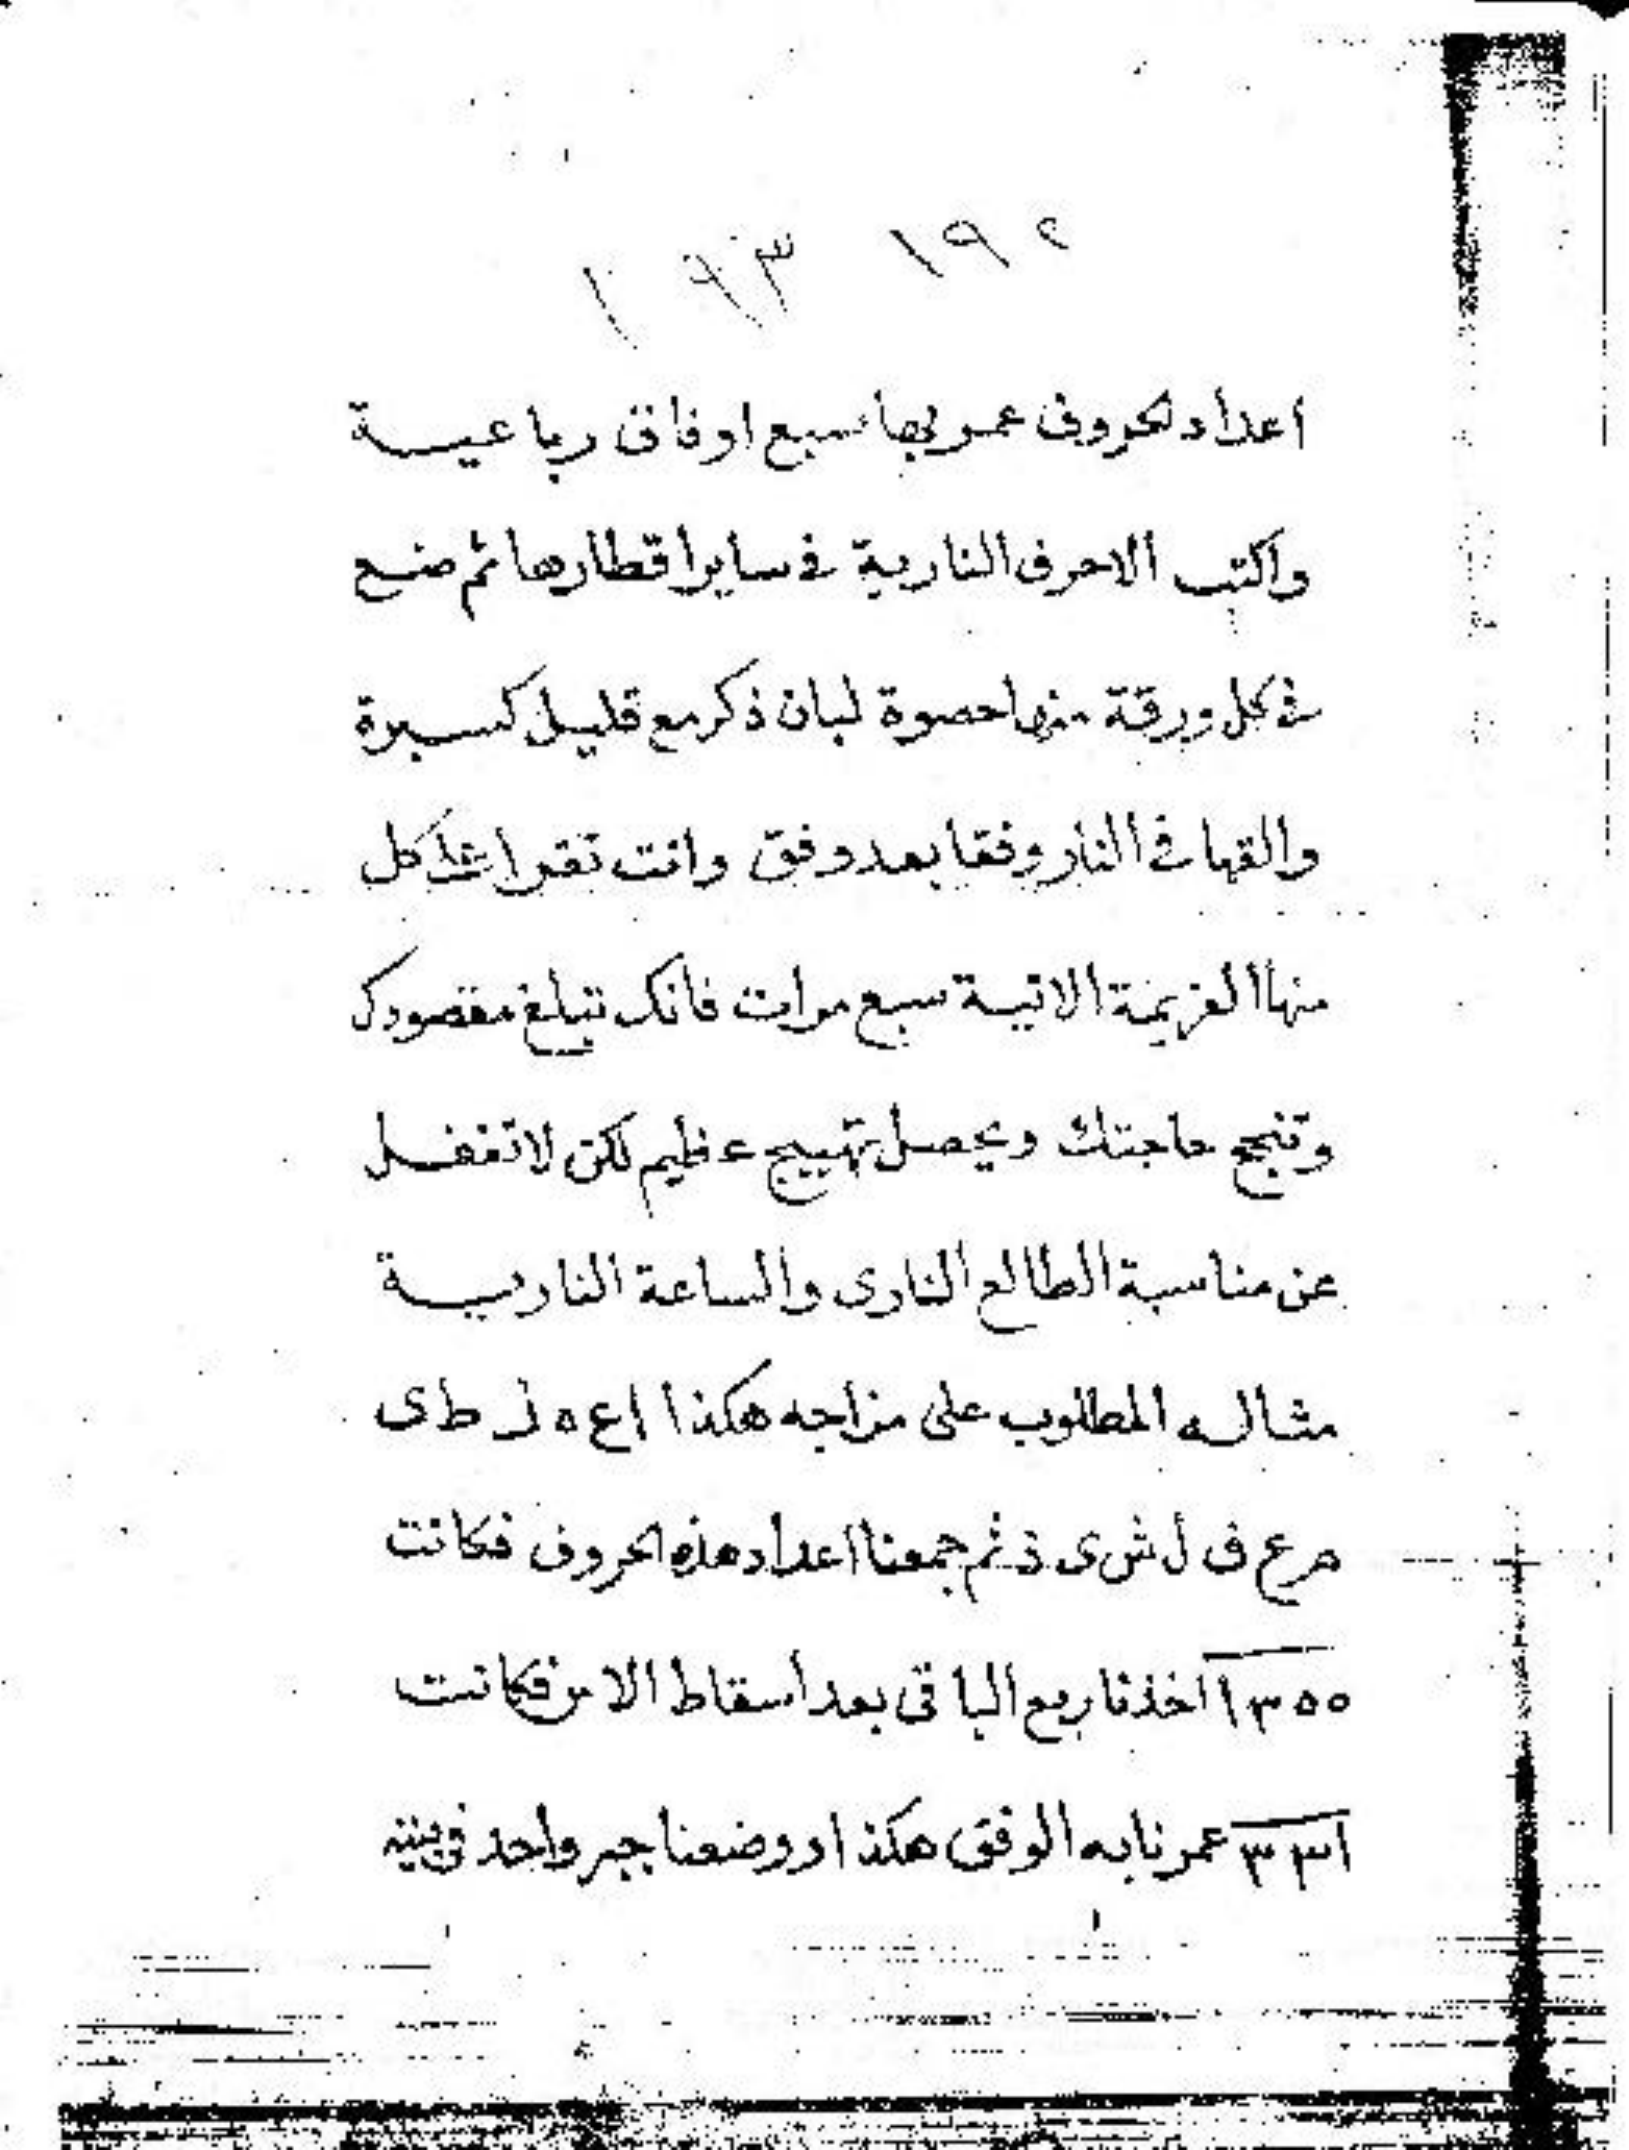 ١٩٢
١٩٣
اعداد لحروف عمر بها سبع اوفاق رباعية
واكتب الاحرف النارية فى ساير اقطارها ثم ضع
فى كل ورقة منها حصوة لبان ذكر مع قليل كسبرة
والقها فى النار وفقا بعد وفق وانت تقرا على كل
منها العزيمة الاتية سبع مرات فانك تبلغ مقصودك
وتنجح حاجتك ويحصل تهييج عظيم لكن لا تغفل
عن مناسبة الطالع النارى والساعة النارية
مثاله المطلوب على مزاجه هكذا ا ع ه ل ط ى
م ر ع ف ل ش ى ذ ثم جمعنا اعداد هذه الحروف فكانت
١٣٥٥ اخذنا ربع الباقى بعد اسقاط الاس فكانت
٣٣١ عمرنا به الوفق هكذا ووضعنا جبر واحد فى